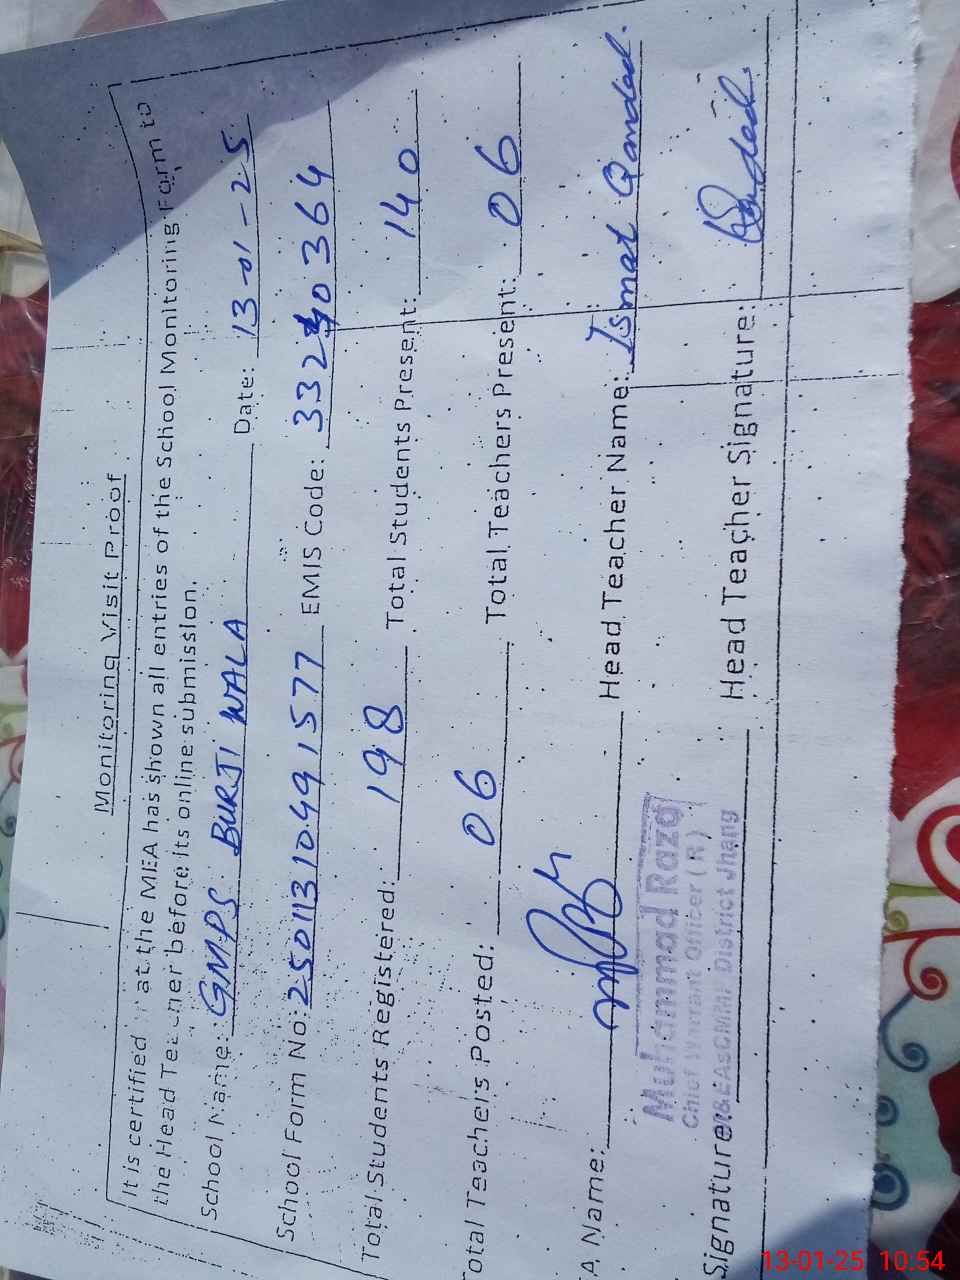 Monitoring Visit Proof
It is certified at the MEA has shown all entries of the School Monitoring Form to
the Head Teacher before its online submission.
School Name: GMPS BURJI WALA Date: 13-01-25
School Form No: 25011310491577 EMIS Code: 33240364
Total Students Registered: 198 Total Students Present: 140
Total Teachers Posted: 06 Total Teachers Present: 06
A Name: Head Teacher Name: Ismat Qandad.
Muhammad Raza
Chief Warrant Officer (R)
District Jhang
Signature: Head Teacher Signature:
13-01-25 10:54